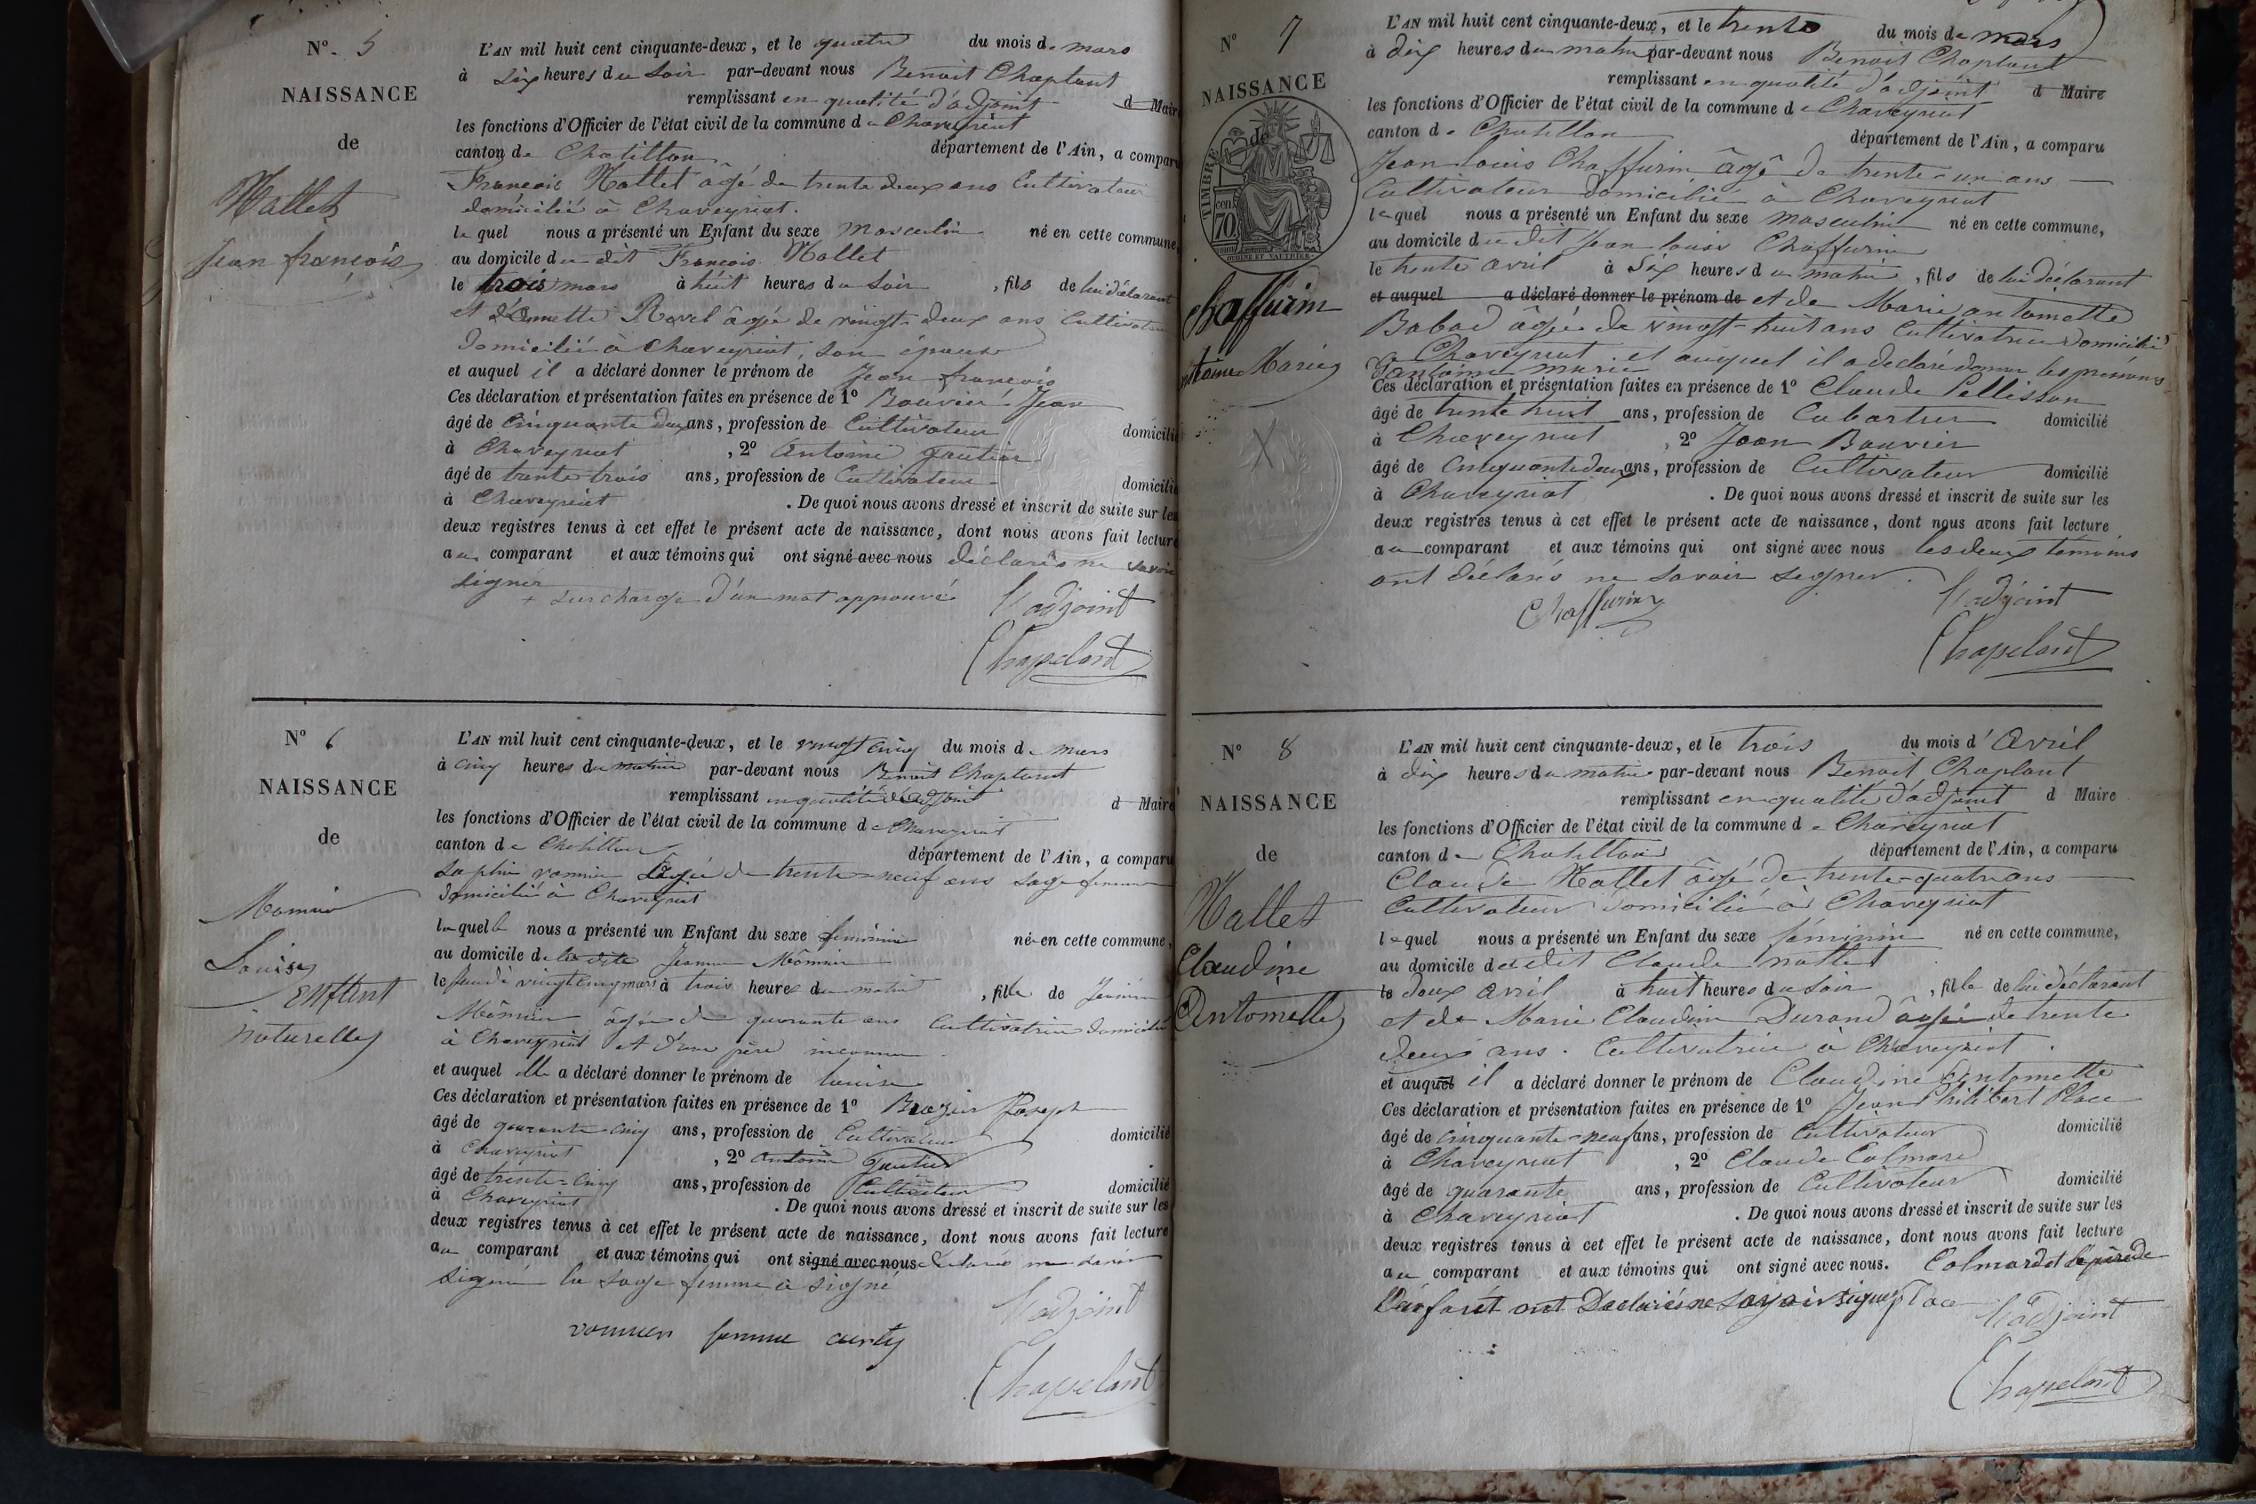 N° 5
NAISSANCE
de
Mallet
Jean françois
L'AN mil huit cent cinquante-deux, et le quatre du mois de mars
à six heures du soir par-devant nous Benoit Chaplant
remplissant en qualité d'adjoint d Maire
les fonctions d'Officier de l'état civil de la commune de Chaveyriat
canton de Chatillon département de l'Ain, a comparu
François Mallet agé de trente deux ans Cultivateur
domicilié à Chaveyriat.
lequel nous a présenté un Enfant du sexe masculin né en cette commune,
au domicile du dit François Mallet
le trois mars à huit heures du soir, fils de lui déclarant
et d'Annette Ravel âgée de vingt-deux ans Cultivatrice
domiciliée à Chaveyriat, son épouse
et auquel il a déclaré donner le prénom de Jean françois
Ces déclaration et présentation faites en présence de 1° Bouvier Jean
âgé de Cinquante deux ans, profession de Cultivateur domicilié
à Chaveyriat, 2° Antoine Gautier
âgé de trente trois ans, profession de Cultivateur domicilié
à Chaveyriat. De quoi nous avons dressé et inscrit de suite sur les
deux registres tenus à cet effet le présent acte de naissance, dont nous avons fait lecture
au comparant et aux témoins qui ont signé avec nous déclarés ne savoir
signer
+ surcharge d'un mot approuvé l'adjoint
Chapelant
N° 6
NAISSANCE
de
Monnier
Louise
Enffent
naturelle
L'AN mil huit cent cinquante-deux, et le vingt cinq du mois de mars
à cinq heures du matin par-devant nous Benoit Chaplant
remplissant en qualité d'adjoint d Maire
les fonctions d'Officier de l'état civil de la commune de Chaveyriat
canton de Chatillon département de l'Ain, a comparu
agée de trente-neuf ans sage femme
domiciliée à Chaveyriat
laquelle nous a présenté un Enfant du sexe féminin né en cette commune,
au domicile de la dite Jeanne Monnier
le jeudi vingt cinq mars à trois heures du matin, fille de
Monnier âgée de quarante ans Cultivatrice domiciliée
à Chaveyriat et d'un père inconnu
et auquel elle a déclaré donner le prénom de Louise
Ces déclaration et présentation faites en présence de 1° Brazier Joseph
âgé de quarante-cinq ans, profession de Cultivateur domicilié
à Chaveyriat, 2° Antoine Gautier
âgé de trente-cinq ans, profession de Cultivateur domicilié
à Chaveyriat. De quoi nous avons dressé et inscrit de suite sur les
deux registres tenus à cet effet le présent acte de naissance, dont nous avons fait lecture
au comparant et aux témoins qui ont signé avec nous déclarés ne savoir
signer la sage femme à signé
l'adjoint
femme
Chapelant
N° 7
NAISSANCE
de
TIMBRE
cen 70
Chaffurin
Antoine Marie
L'AN mil huit cent cinquante-deux, et le trente du mois de mars
à dix heures du matin par-devant nous Benoit Chaplant
remplissant en qualité d'adjoint d Maire
les fonctions d'Officier de l'état civil de la commune de Chaveyriat
canton de Chatillon département de l'Ain, a comparu
Jean louis Chaffurin âgé de trente-un ans
Cultivateur domicilié à Chaveyriat
lequel nous a présenté un Enfant du sexe masculin né en cette commune,
au domicile du dit Jean louis Chaffurin
le trente avril à six heures du matin, fils de lui déclarant
et auquel a déclaré donner le prénom de et de Marie antoinette
Babad âgée de vingt-huit ans Cultivatrice domiciliée
Chaveyriat et auquel il a déclaré donner les prénoms
d'Antoine marie
Ces déclaration et présentation faites en présence de 1° Claude Pellisson
âgé de trente huit ans, profession de Cabartier domicilié
à Chaveyriat, 2° Jean Bouvier
âgé de Cinquante deux ans, profession de Cultivateur domicilié
à Chaveyriat. De quoi nous avons dressé et inscrit de suite sur les
deux registres tenus à cet effet le présent acte de naissance, dont nous avons fait lecture
au comparant et aux témoins qui ont signé avec nous les deux témoins
ont déclarés ne savoir signer.
Chaffurin l'adjoint
Chapelant
N° 8
NAISSANCE
de
Mallet
Claudine
Antoinette
L'AN mil huit cent cinquante-deux, et le trois du mois d'Avril
à dix heures du matin par-devant nous Benoit Chaplant
remplissant en qualité d'adjoint d Maire
les fonctions d'Officier de l'état civil de la commune de Chaveyriat
canton de Chatillon département de l'Ain, a comparu
Claude Mallet âgé de trente-quatre ans
Cultivateur domicilié à Chaveyriat
lequel nous a présenté un Enfant du sexe féminin né en cette commune,
au domicile du dit Claude Mallet
le deux avril à huit heures du soir, fille de lui déclarant
et de Marie Claudine Durand âgée de trente
deux ans. Cultivatrice à Chaveyriat.
et auquel il a déclaré donner le prénom de Claudine Antoinette
Ces déclaration et présentation faites en présence de 1° Jean Philibert Place
âgé de cinquante-neuf ans, profession de Cultivateur domicilié
à Chaveyriat, 2° Claude Colmard
âgé de quarante ans, profession de Cultivateur domicilié
à Chaveyriat. De quoi nous avons dressé et inscrit de suite sur les
deux registres tenus à cet effet le présent acte de naissance, dont nous avons fait lecture
au comparant et aux témoins qui ont signé avec nous. Colmard et le père de
l'enfant ont Declaré ne savoir signer Place l'adjoint
Chapelant